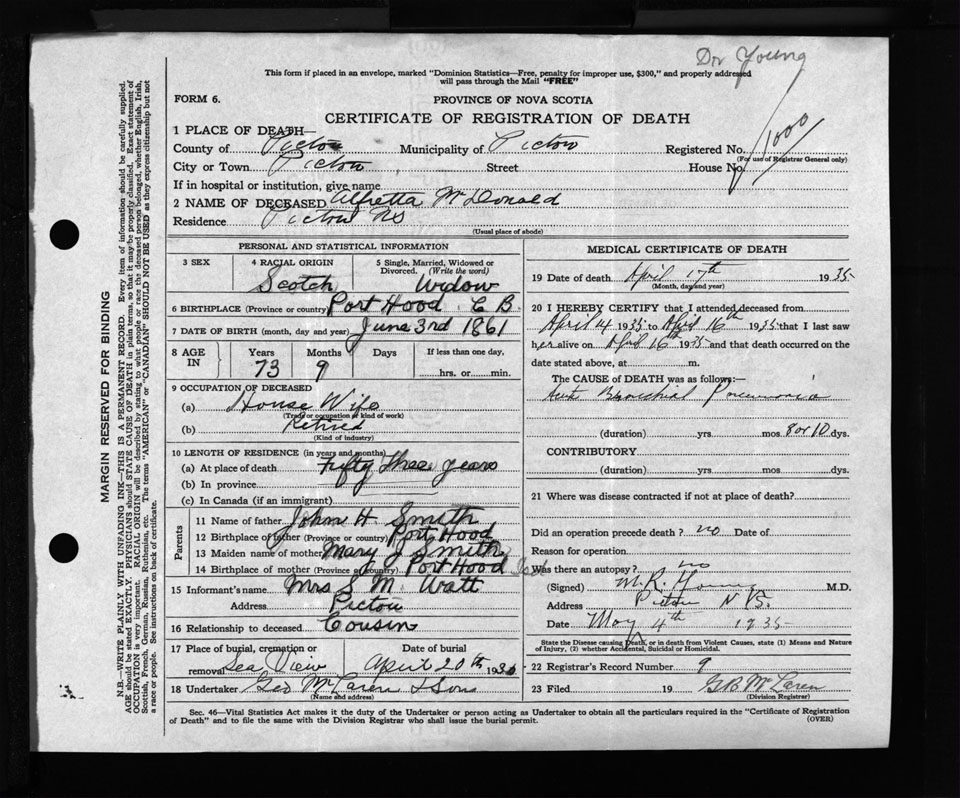 Dr Young
This form if placed in an envelope, marked "Dominion Statistics—Free, penalty for improper use, $300," and properly addressed
will pass through the Mail "FREE"
FORM 6.
PROVINCE OF NOVA SCOTIA
CERTIFICATE OF REGISTRATION OF DEATH
1000
1 PLACE OF DEATH—
County of Pictou Municipality of Pictou Registered No.
(For use of Registrar General only)
City or Town Pictou Street House No.
If in hospital or institution, give name
2 NAME OF DECEASED Alfretta McDonald
Residence Pictou NS
(Usual place of abode)
PERSONAL AND STATISTICAL INFORMATION
3 SEX
4 RACIAL ORIGIN
Scotch
5 Single, Married, Widowed or Divorced. (Write the word)
Widow
6 BIRTHPLACE (Province or country) Port Hood C B
7 DATE OF BIRTH (month, day and year) June 3rd 1861
8 AGE IN
Years 73
Months 9
Days
If less than one day.
hrs. or min.
9 OCCUPATION OF DECEASED
(a) House Wife
(Trade or occupation or kind of work)
(b) Retired
(Kind of industry)
10 LENGTH OF RESIDENCE (in years and months)
(a) At place of death Fifty three years
(b) In province
(c) In Canada (if an immigrant)
Parents
11 Name of father John H Smith
12 Birthplace of father (Province or country) Port Hood
13 Maiden name of mother Mary J Smith
14 Birthplace of mother (Province or country) Port Hood
15 Informant's name Mrs S M Watt
Address Pictou
16 Relationship to deceased Cousin
17 Place of burial, cremation or removal Sea View
Date of burial
April 20th 193
18 Undertaker Geo McLaren & Sons
(Name and address)
MEDICAL CERTIFICATE OF DEATH
19 Date of death April 17th 1935
(Month, day and year)
20 I HEREBY CERTIFY that I attended deceased from
April 4 1935 to April 16th 1935 that I last saw
her alive on April 16th 1935 and that death occurred on the
date stated above, at m.
The CAUSE of DEATH was as follows:—
Acute Bronchial Pneumonia
(duration) yrs. mos. 8 or 10 dys.
CONTRIBUTORY
(duration) yrs. mos. dys.
21 Where was disease contracted if not at place of death?
Did an operation precede death? no Date of
Reason for operation
Was there an autopsy? no
(Signed) M.R. Young M.D.
Address Pictou N.S.
Date May 4th 1935
State the Disease causing Death, or in death from Violent Causes, state (1) Means and Nature
of Injury, (2) whether Accidental, Suicidal or Homicidal.
22 Registrar's Record Number 9
23 Filed 19 G B McLaren
(Division Registrar)
Sec. 46—Vital Statistics Act makes it the duty of the Undertaker or person acting as Undertaker to obtain all the particulars required in the "Certificate of Registration
of Death" and to file the same with the Division Registrar who shall issue the burial permit.
(OVER)
MARGIN RESERVED FOR BINDING
N.B.—WRITE PLAINLY WITH UNFADING INK—THIS IS A PERMANENT RECORD. Every item of information should be carefully supplied.
AGE should be stated EXACTLY. PHYSICIANS should STATE CAUSE OF DEATH in plain terms, so that it may be properly classified. Exact statement of
OCCUPATION is very important. RACIAL ORIGIN will be described by stating to what people or race the deceased person belonged, whether English, Irish,
Scottish, French, German, Russian, Ruthenian, etc. The terms "AMERICAN" or "CANADIAN" SHOULD NOT BE USED as they express citizenship but not
a race or people. See instructions on back of certificate.